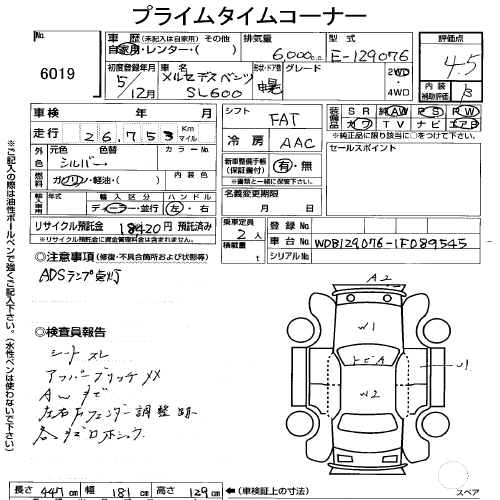 プライムタイムコーナー
No.
6019
車歴 (未記入は自家用) その他
自家用・レンター・( )
排気量
6,000c.c.
型式
E-129076
評価点
4.5
初度登録年月
5/12月
車名
メルセデスベンツ
SL600
形状・ドア数
グレード
2WD
・
4WD
内装
補助評価
B
車検 年 月
走行 26,753 Km
マイル
シフト
FAT
冷房
AAC
装備品
SR 純AW PS PW
カワ TV ナビ エアB
*純正品に限り該当に○をつけて下さい。
セールスポイント
外色
元色 色替
シルバー
カラーNo.
燃料
ガソリン・軽油・( )
内装色
新車整備手帳
(保証書付)
有・無
*一緒に保管して下さい。
名義変更期限
月 日
輸入車用
年式
輸入区分
ディーラー・並行
ハンドル
左・右
リサイクル預託金 18420円 預託済み
*リサイクル預託金に資金管理料金は含みません。
乗車定員
2人
積載量
t
登録No.
車台No. WDB129076-1F089545
シリアルNo.
◎注意事項 (修復・不具合箇所および状態等)
ADSランプ点灯
◎検査員報告
シートスレ
AWキズ
左右Fフェンダー調整跡
*(ご記入の際は油性ボールペンで強くご記入下さい。(水性ペンは使わないで下さい)
A2
W1
W2
U1
長さ 447cm 幅 181cm 高さ 129cm
(車検証上の寸法)
スペア